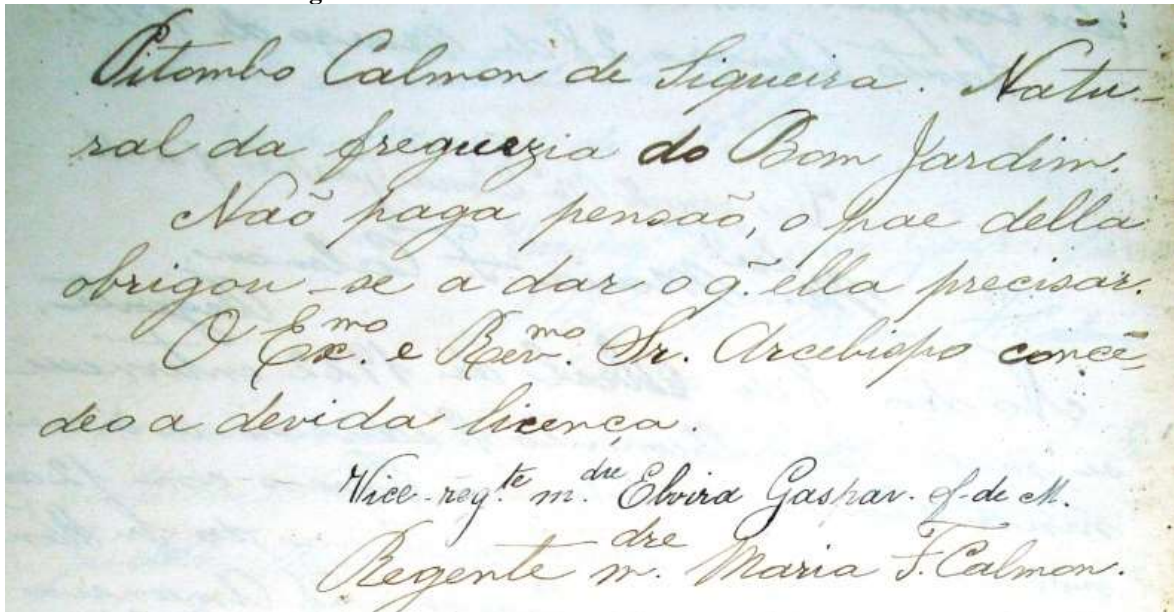 Pitombo Calmon de Siqueira. Natu-
ral da freguezia do Bom Jardim.
Naõ paga pensaõ, o pae della
obrigou-se a dar o q̃. ella precisar.
O Ex.mo e Rev.mo Sr. Arcebispo conce-
deo a devida licença.
Vice-reg.te m.dre Elvira Gaspar. of-de M.
Regente m.dre Maria F. Calmon.